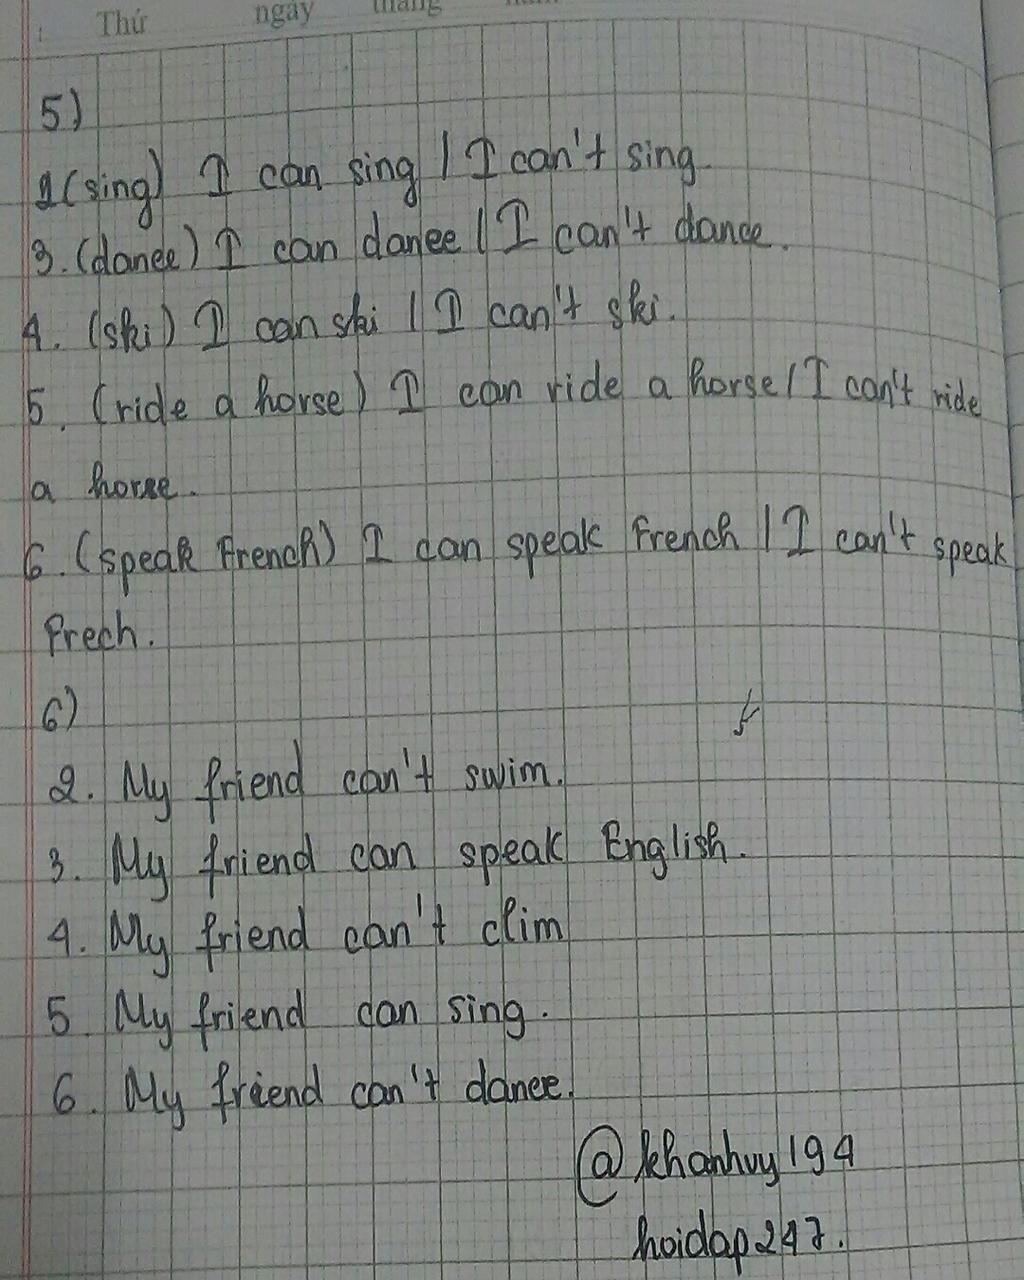 Thứ ngày tháng năm
5)
2(sing) I can sing / I can't sing.
3. (dance) I can dance / I can't dance.
4. (ski) I can ski / I can't ski.
5. (ride a horse) I can ride a horse / I can't ride
a horse.
6. (speak French) I can speak French / I can't speak
Frech.
6)
2. My friend can't swim.
3. My friend can speak English.
4. My friend can't clim
5. My friend can sing.
6. My friend can't dance.
@khanhvy194
hoidap247.